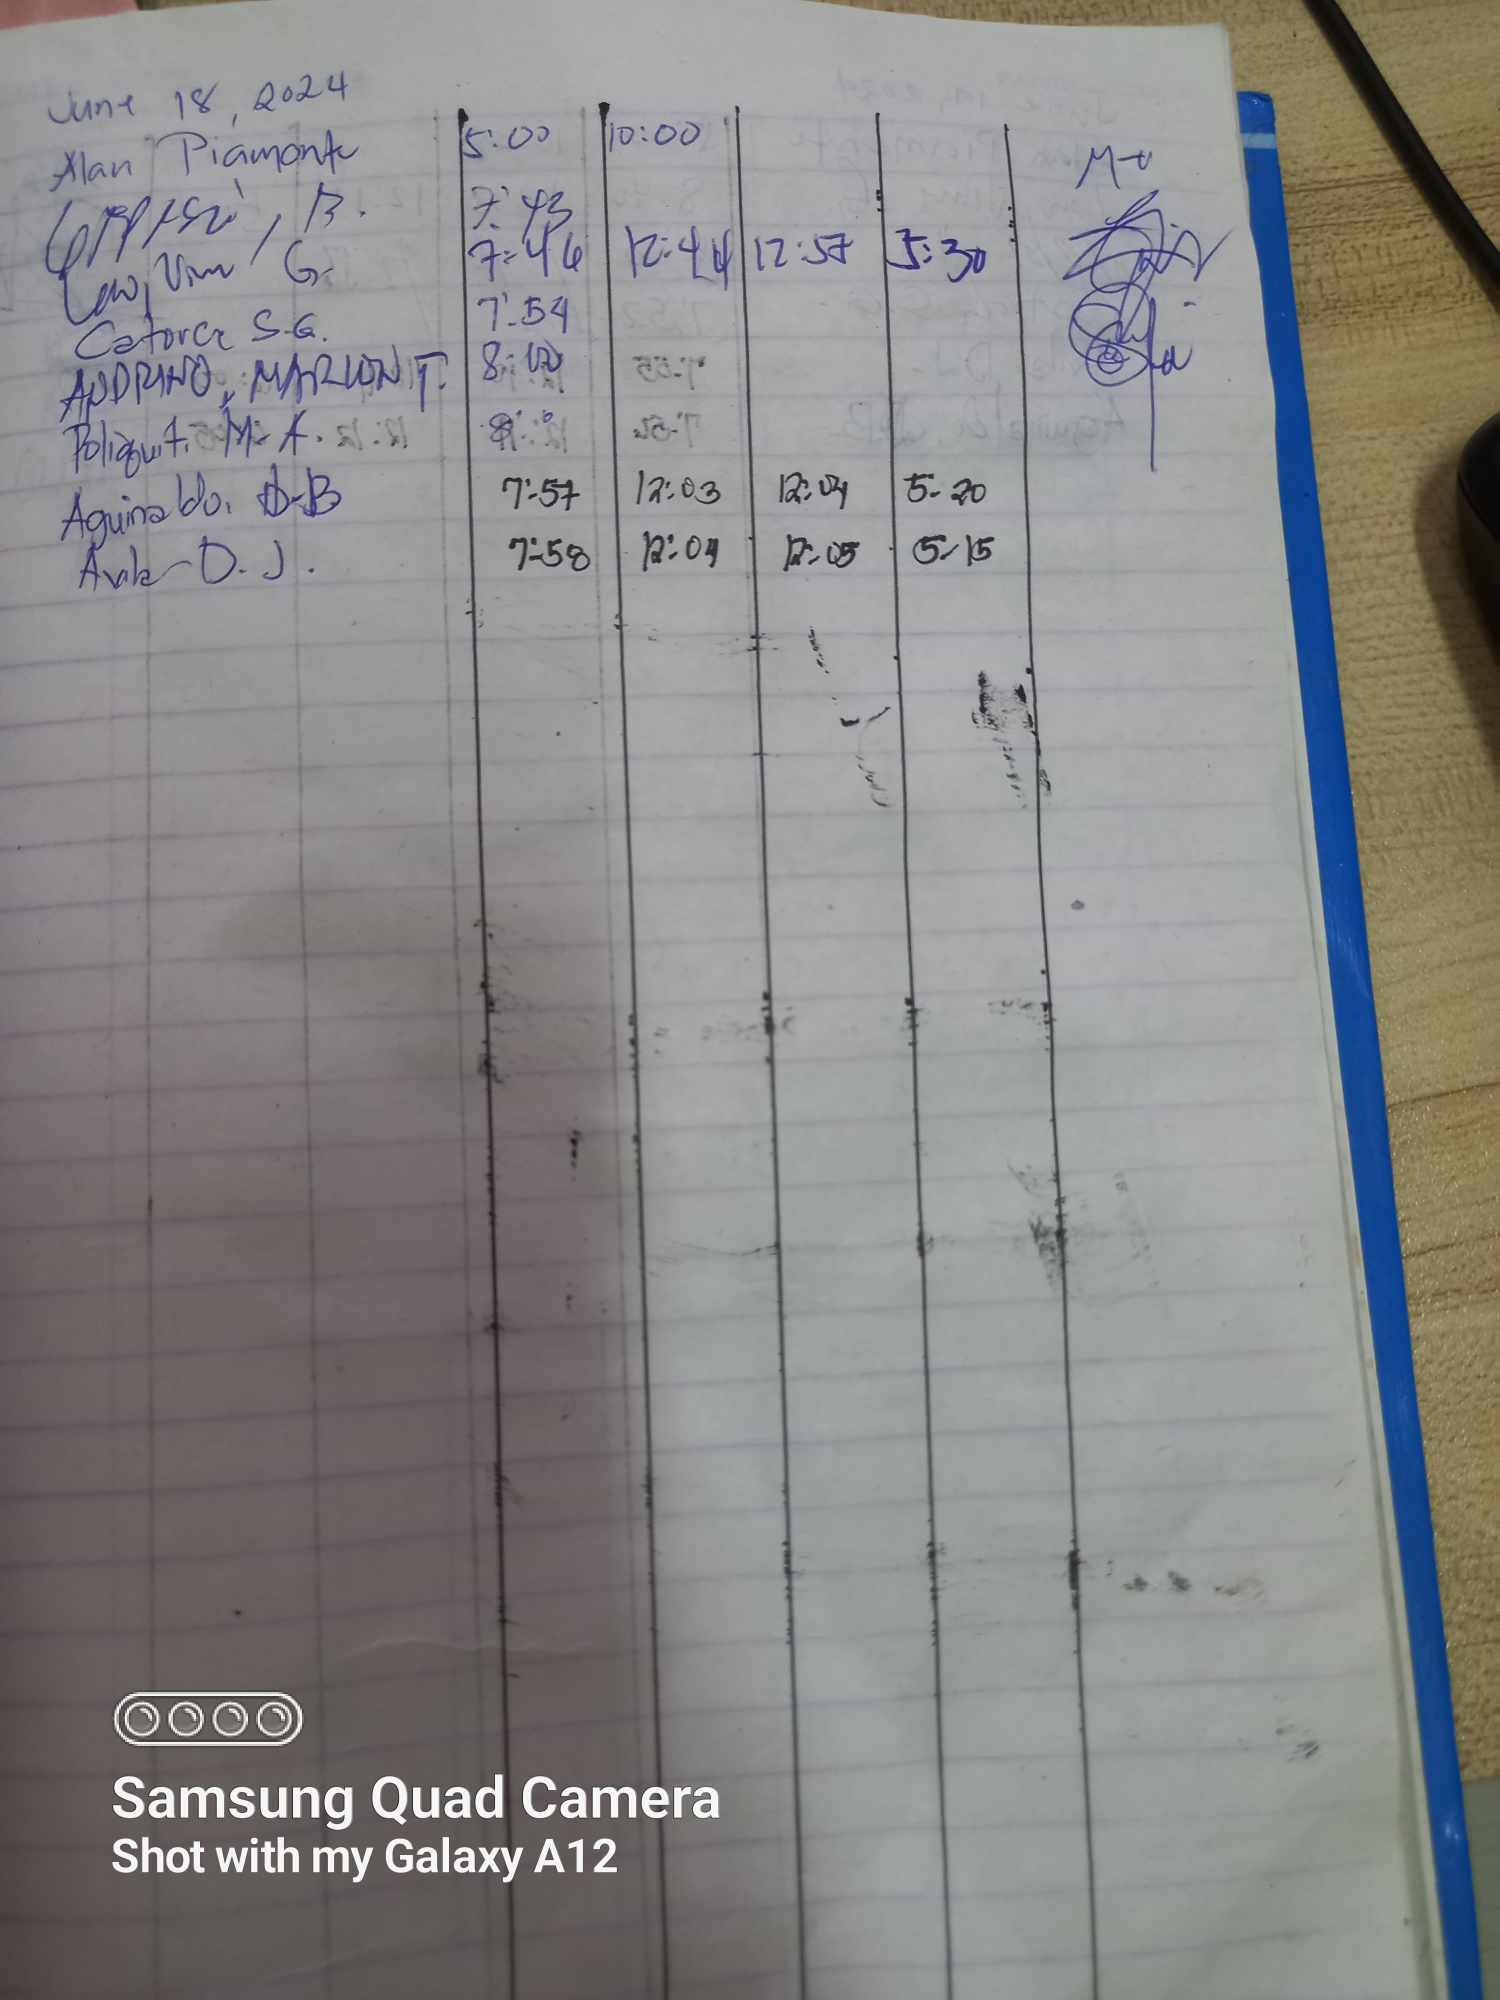 June 18, 2024
Alan Piamonte 5:00 10:00
B. 7:43
Law, Vim G. 7:46 12:44 12:57 5:30
Catorce S.G. 7:54
ANDRINO, MARLON T. 8:00
Poliquit. M. A.
Aguinaldo. D-B 7:57 12:03 12:04 5-20
Avila - D. J. 7:58 12:04 12:05 5-15
Samsung Quad Camera
Shot with my Galaxy A12